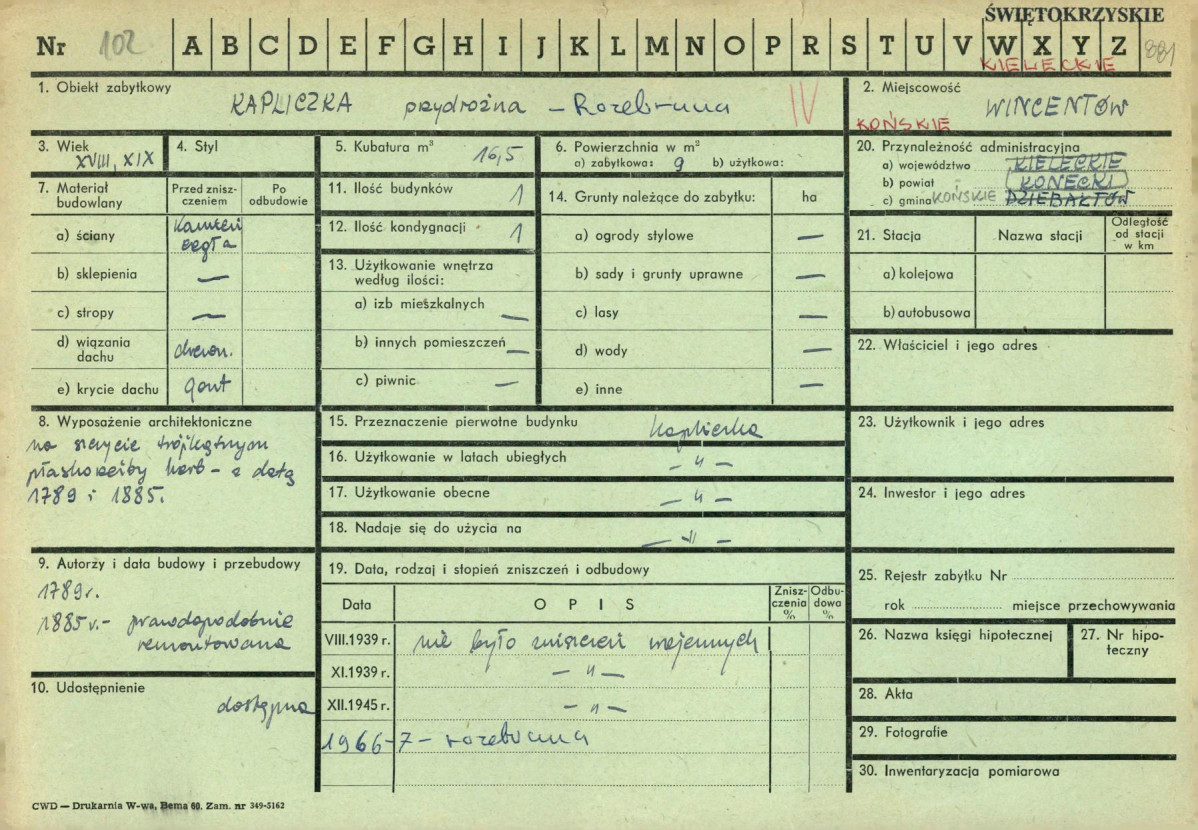 ŚWIĘTOKRZYSKIE
Nr 102 A B C D E F G H I J K L M N O P R S T U V W X Y Z 881
KIELECKIE
1. Obiekt zabytkowy
KAPLICZKA przydrożna – Rozebrana IV
2. Miejscowość
WINCENTÓW
KOŃSKIE
3. Wiek
XVIII, XIX
4. Styl
5. Kubatura m³ 16,5
6. Powierzchnia w m²
a) zabytkowa: 9 b) użytkowa:
20. Przynależność administracyjna
a) województwo KIELECKIE
b) powiat KONECKI
c) gmina KOŃSKIE DZIEBAŁTÓW
7. Materiał budowlany
Przed zniszczeniem
Po odbudowie
a) ściany kamień cegła
b) sklepienia —
c) stropy —
d) wiązania dachu drewn.
e) krycie dachu gont
11. Ilość budynków 1
12. Ilość kondygnacji 1
13. Użytkowanie wnętrza według ilości:
a) izb mieszkalnych —
b) innych pomieszczeń —
c) piwnic —
14. Grunty należące do zabytku: ha
a) ogrody stylowe —
b) sady i grunty uprawne —
c) lasy —
d) wody —
e) inne —
21. Stacja
Nazwa stacji
Odległość od stacji w km
a) kolejowa
b) autobusowa
22. Właściciel i jego adres
8. Wyposażenie architektoniczne
na szczycie trójkątnym
płaskorzeźby herb – z datą
1789 i 1885.
15. Przeznaczenie pierwotne budynku kapliczka
16. Użytkowanie w latach ubiegłych – " –
17. Użytkowanie obecne – " –
18. Nadaje się do użycia na – " –
23. Użytkownik i jego adres
24. Inwestor i jego adres
9. Autorzy i data budowy i przebudowy
1789 r.
1885 r. – prawdopodobnie
remontowana
10. Udostępnienie
dostępna
19. Data, rodzaj i stopień zniszczeń i odbudowy
Data
OPIS
Zniszczenia %
Odbudowa %
VIII.1939 r. nie było zniszczeń wojennych
XI.1939 r. – " –
XII.1945 r. – " –
1966-7 – rozebrana
25. Rejestr zabytku Nr
rok miejsce przechowywania
26. Nazwa księgi hipotecznej
27. Nr hipoteczny
28. Akta
29. Fotografie
30. Inwentaryzacja pomiarowa
CWD — Drukarnia W-wa, Bema 60. Zam. nr 349-5162